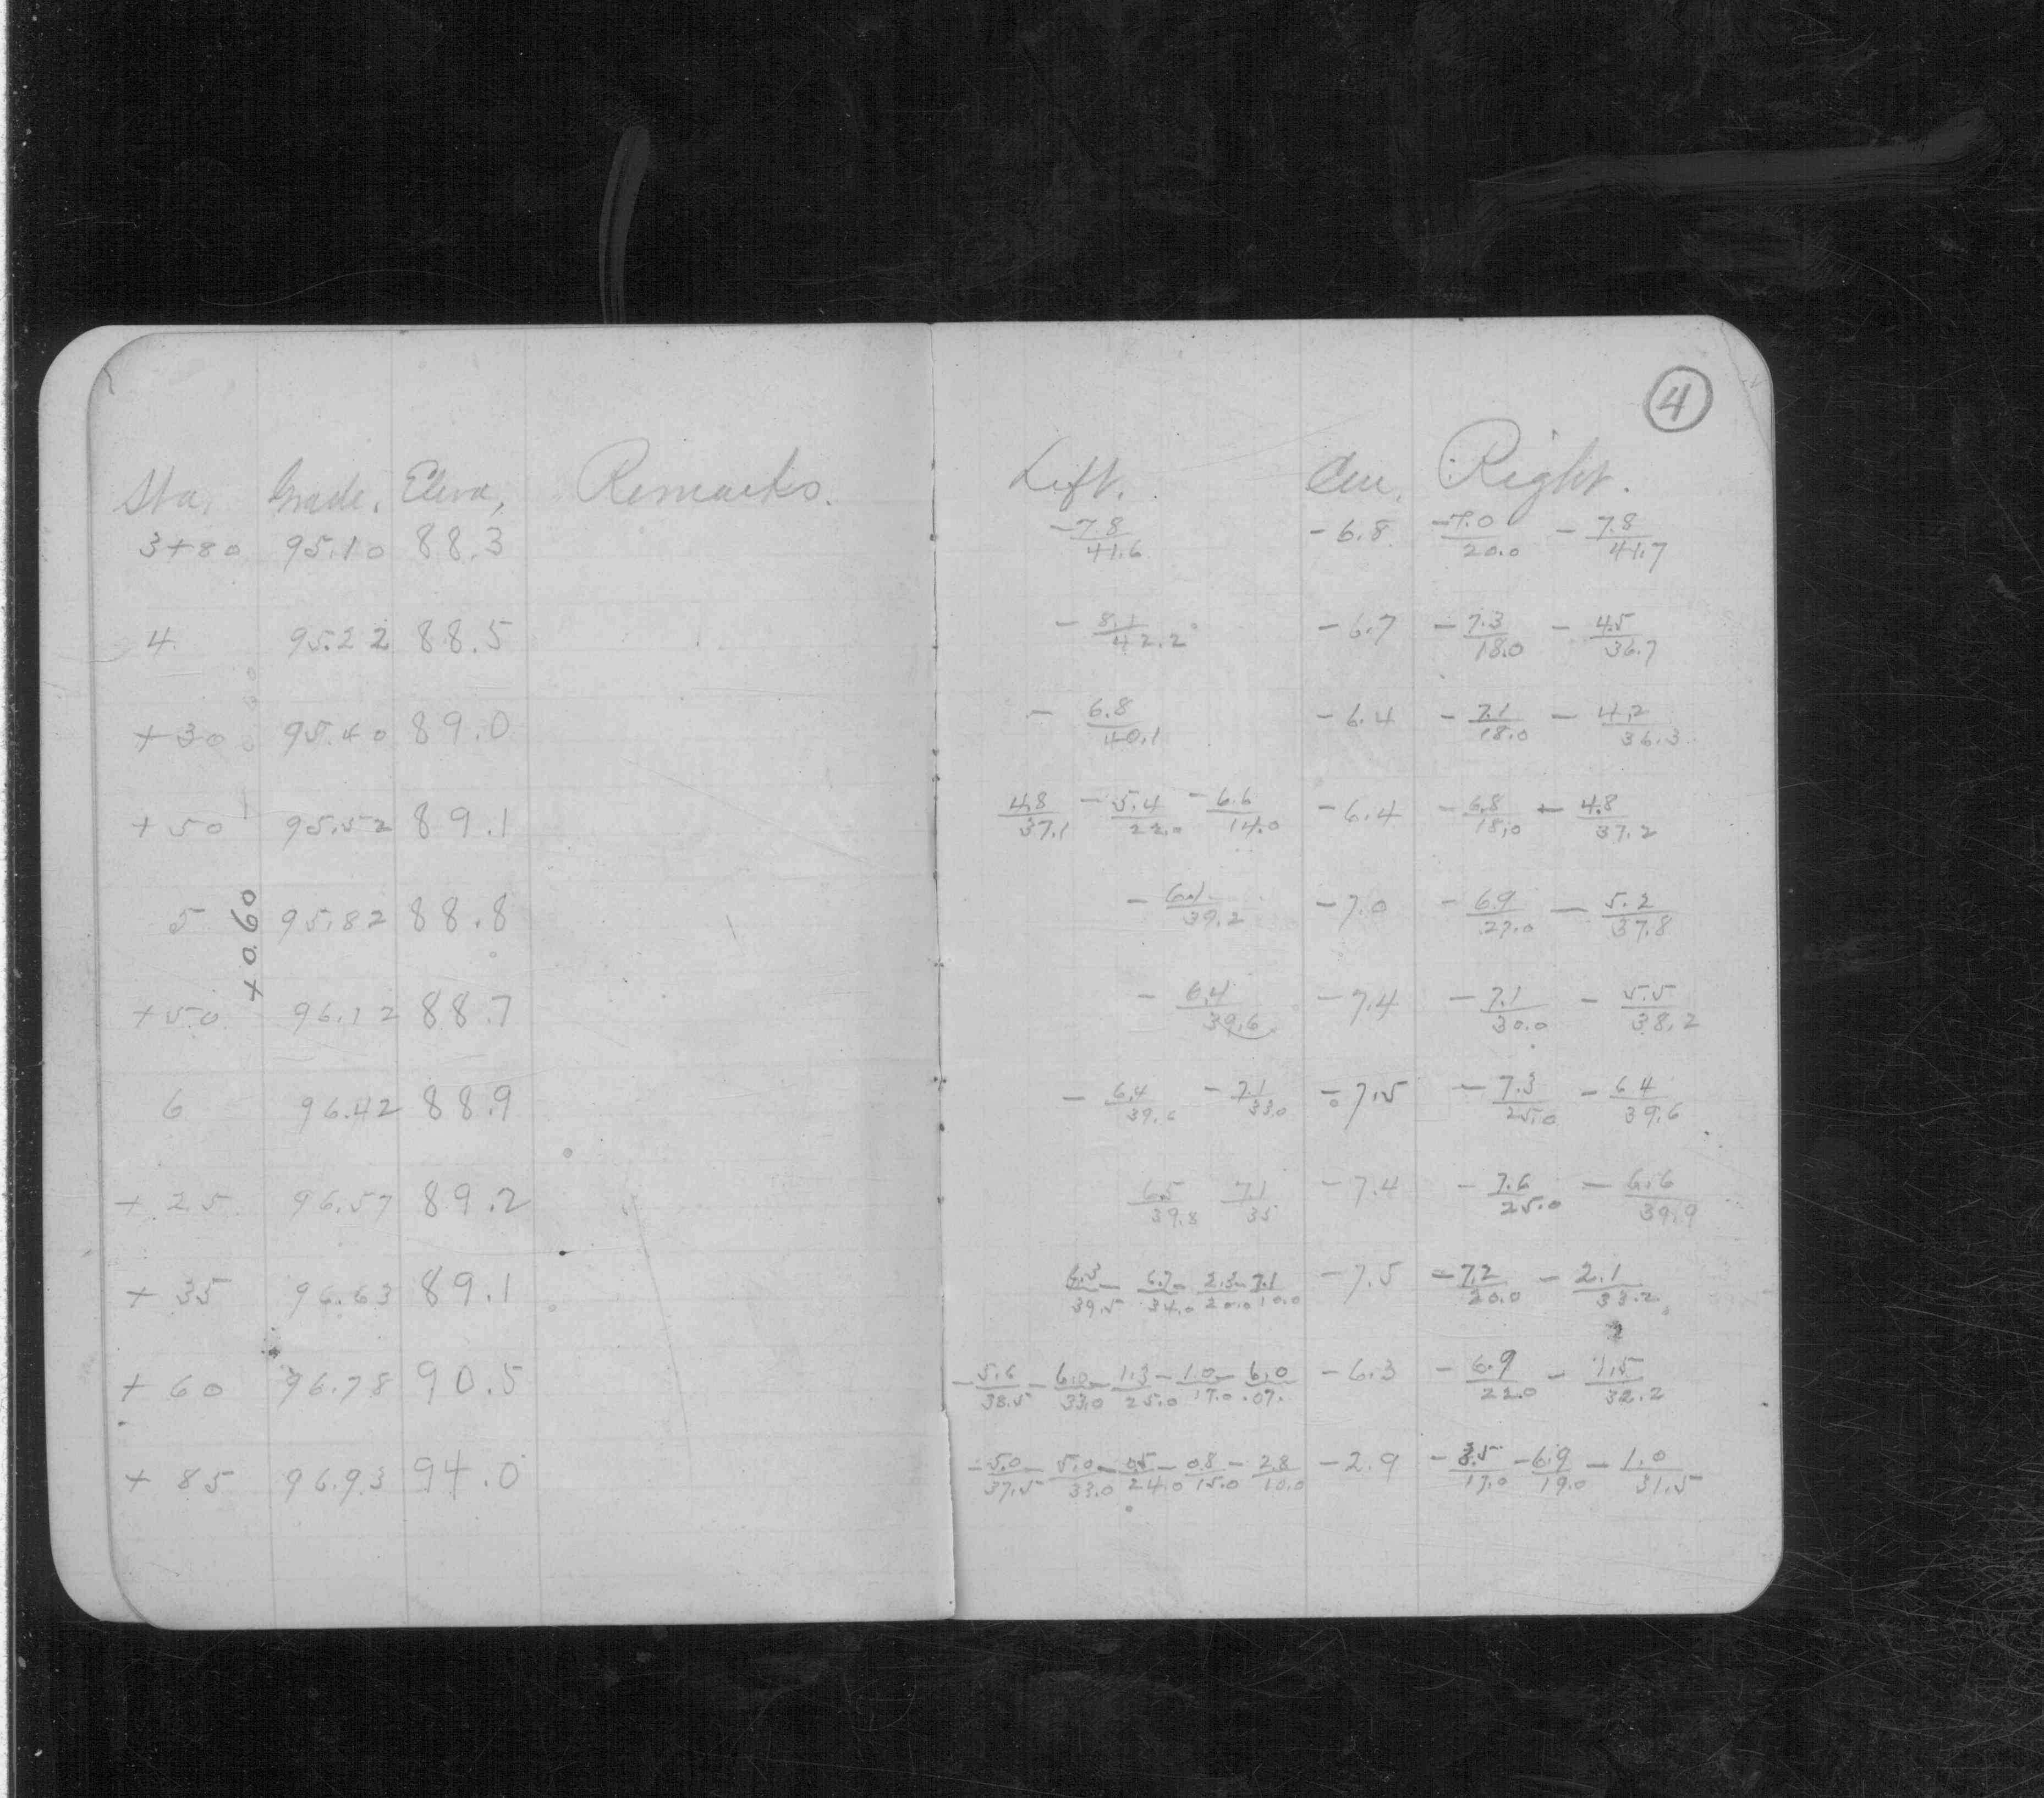 4
Sta. Grade. Eleva, Remarks. Left. Cen. Right.
3+80 95.10 88.3 -7.8/41.6 -6.8 -7.0/20.0 -7.8/41.7
4 95.22 88.5 -8.1/42.2 -6.7 -7.3/18.0 -4.5/36.7
+30 95.40 89.0 -6.8/40.1 -6.4 -7.1/18.0 -4.2/36.3
+50 95.52 89.1 4.8/37.1 -5.4/22.0 -6.6/14.0 -6.4 -6.8/18.0 -4.8/37.2
5 95.82 88.8 -6.1/39.2 -7.0 -6.9/27.0 -5.2/37.8
+0.60
+50 96.12 88.7 -6.4/39.6 -7.4 -7.1/30.0 -5.5/38.2
6 96.42 88.9 -6.4/39.6 -7.1/33.0 -7.5 -7.3/25.0 -6.4/39.6
+25 96.57 89.2 6.5/39.8 7.1/35 -7.4 -7.6/25.0 -6.6/39.9
+35 96.63 89.1 6.3/39.5 -6.7/34.0 -2.3/20.0 -7.1/10.0 -7.5 -7.2/20.0 -2.1/33.2
+60 96.78 90.5 -5.6/38.5 -6.0/33.0 -1.3/25.0 -1.0/17.0 -6.0/.07. -6.3 -6.9/22.0 -1.5/32.2
+85 96.93 94.0 -5.0/37.5 -5.0/33.0 -0.5/24.0 -0.8/15.0 -2.8/10.0 -2.9 -3.5/17.0 -6.9/19.0 -1.0/31.5